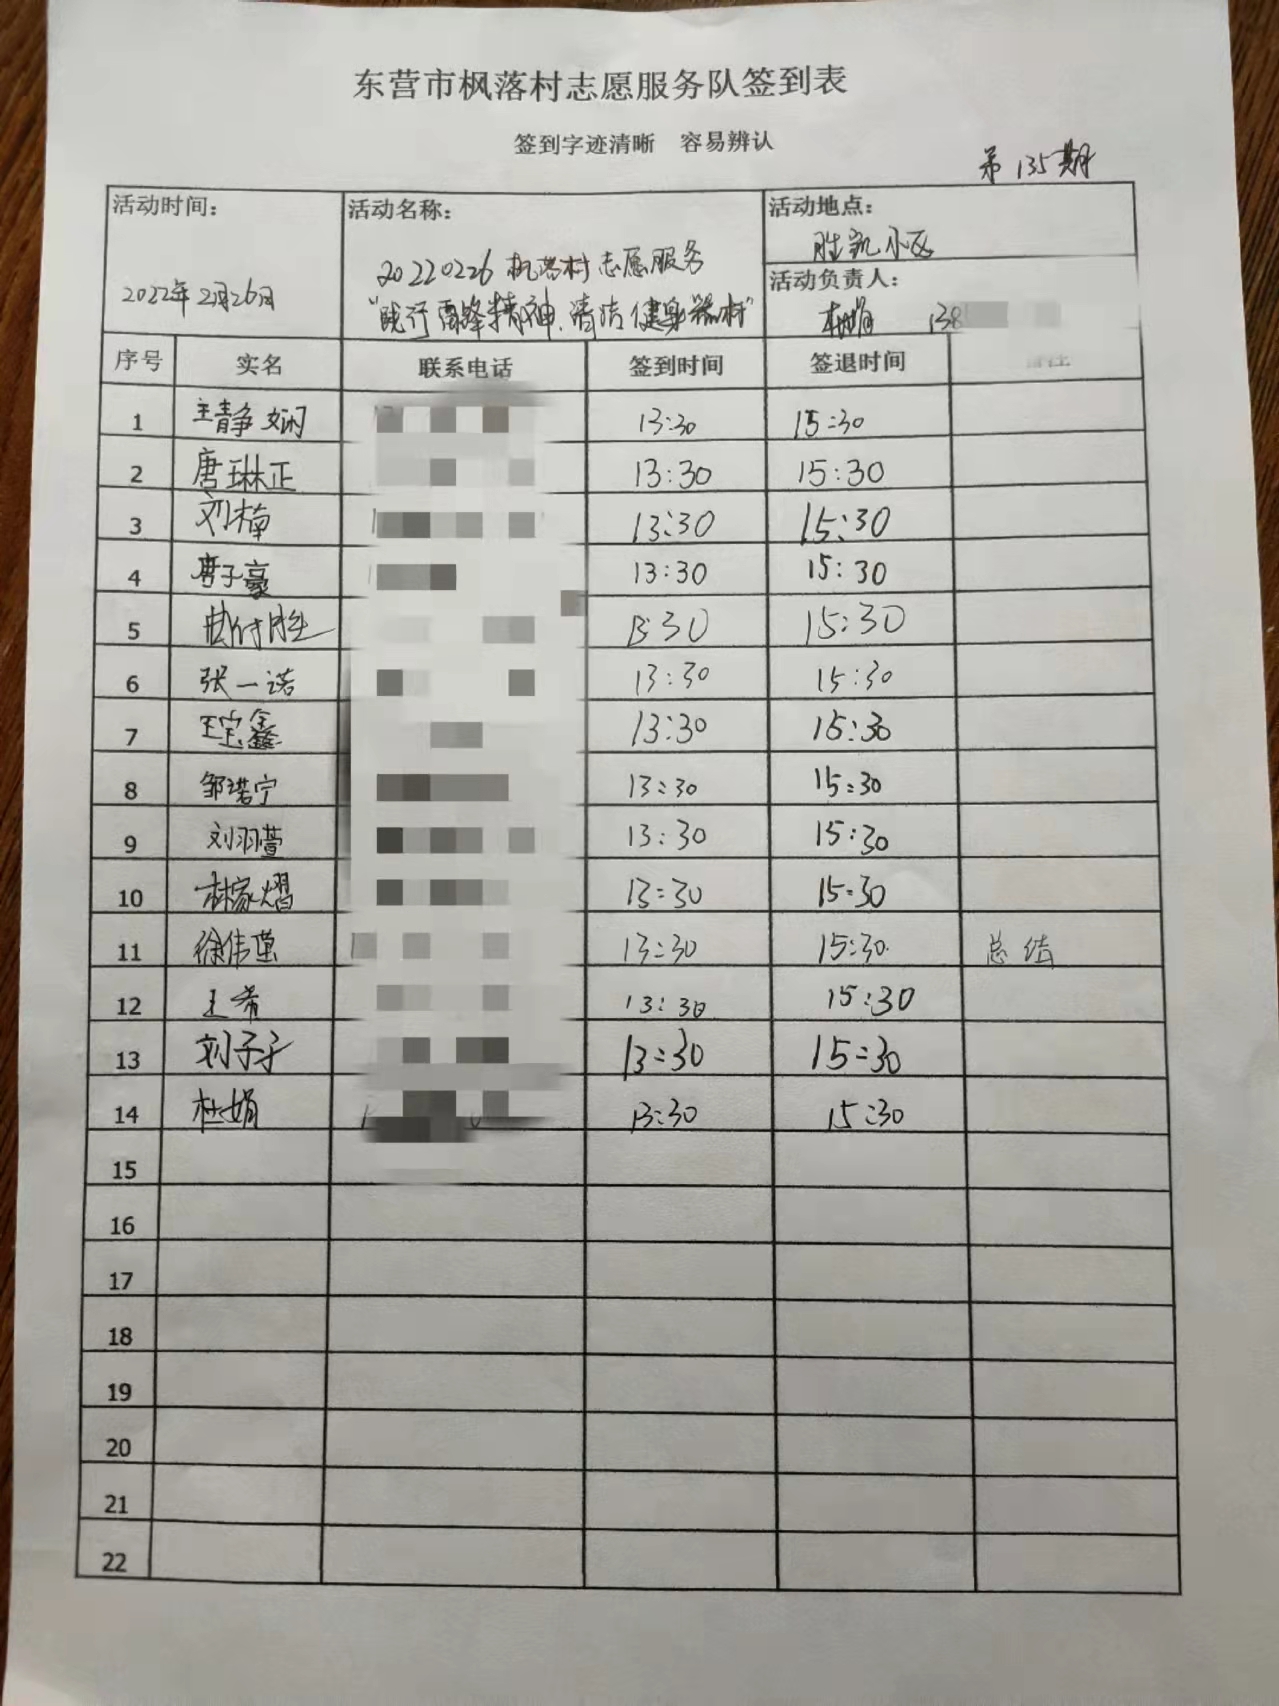 东营市枫落村志愿服务队签到表
签到字迹清晰 容易辨认
第135期
活动时间：
2022年2月26日
活动名称：
20220226枫落村志愿服务
"践行雷锋精神、清洁健身器材"
活动地点：
胜凯小区
活动负责人：
杜娟 138
序号 实名 联系电话 签到时间 签退时间 备注
1 王静娴 13:30 15:30
2 唐琳正 13:30 15:30
3 刘楠 13:30 15:30
4 唐子豪 13:30 15:30
5 13:30 15:30
6 张一诺 13:30 15:30
7 王宝鑫 13:30 15:30
8 邹诺宁 13:30 15:30
9 刘羽萱 13:30 15:30
10 林家熠 13:30 15:30
11 徐伟 13:30 15:30 总结
12 王希 13:30 15:30
13 刘子子 13:30 15:30
14 杜娟 13:30 15:30
15
16
17
18
19
20
21
22